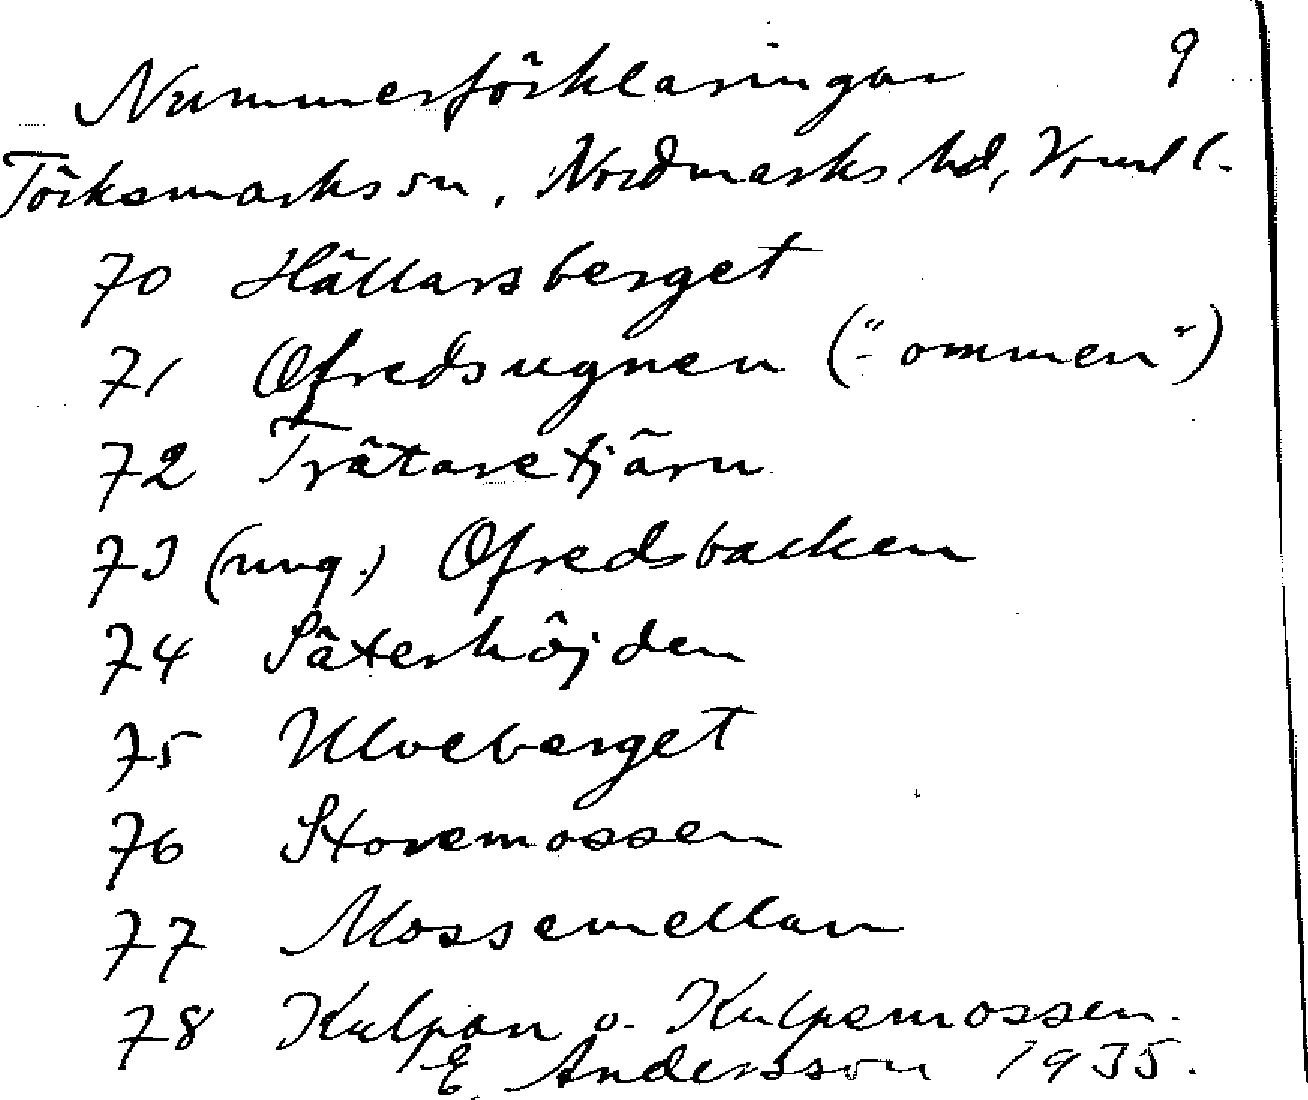 9
Nummerförklaringar
Töcksmarks sn, Nordmarks hd, Vrml.
70 Hällarsberget
71 Ofredsugnen ("-ommen")
72 Trätaretjärn
73 (ung.) Ofredsbacken
74 Säterhöjden
75 Ulveberget
76 Storemossen
77 Mossemellan
78 Kulpan o. Kulpemossen.
E. Andersson 1935.